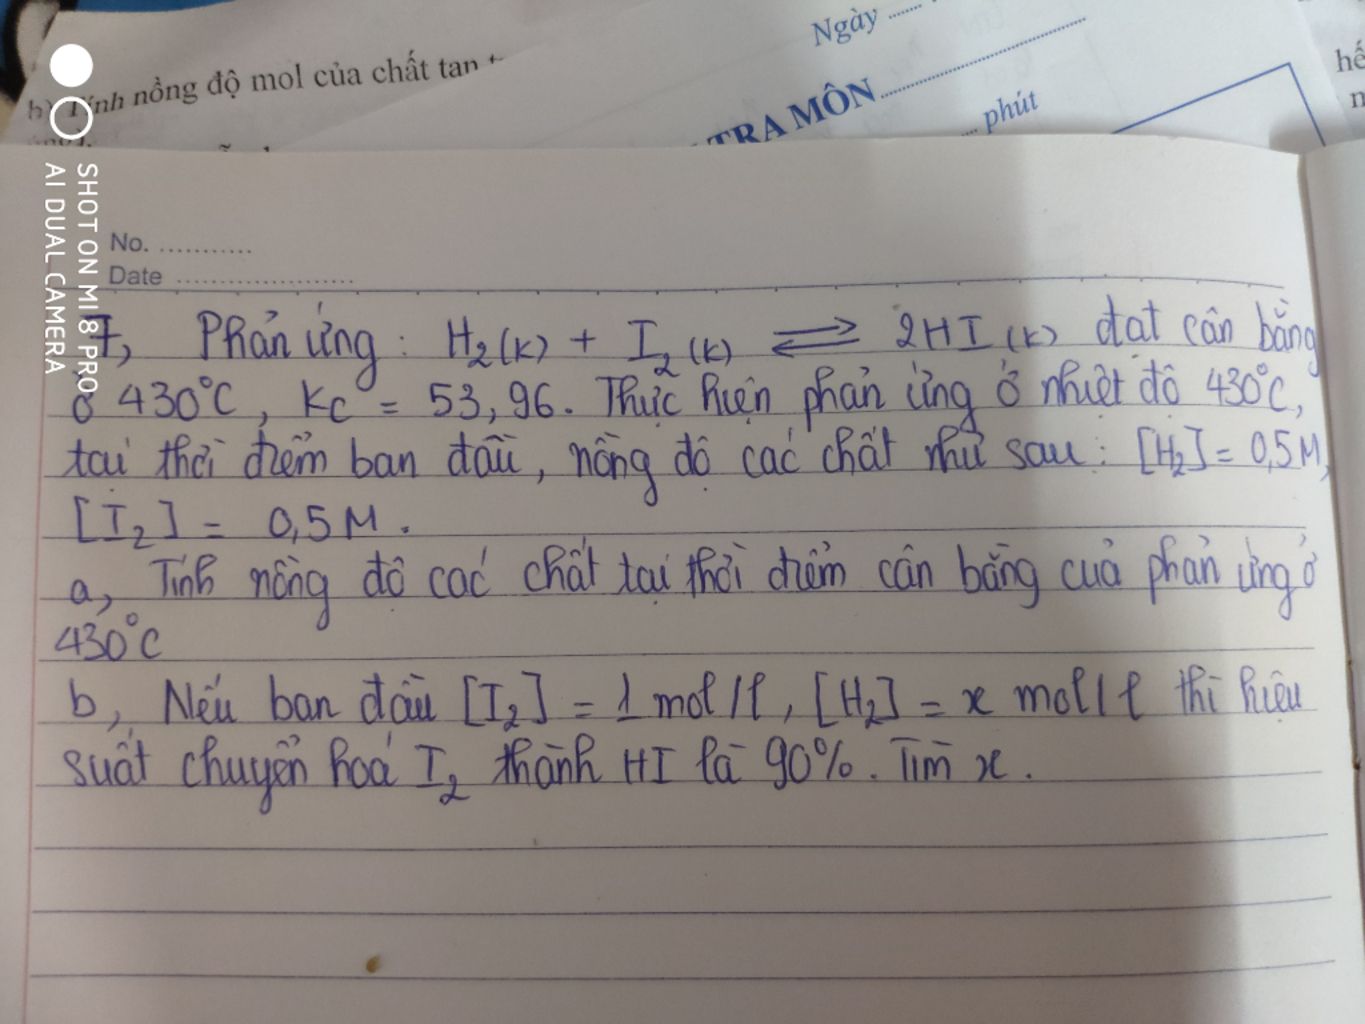 Ngày ......
hế
b) Tính nồng độ mol của chất tan
TRA MÔN..............................
..... phút
SHOT ON MI 8 PRO
AI DUAL CAMERA
No. ...........
Date .....................
7, Phản ứng : H2(K) + I2(K) ⇌ 2HI(K) đạt cân bằng
ở 430°C, Kc = 53,96. Thực hiện phản ứng ở nhiệt độ 430°C,
tại thời điểm ban đầu, nồng độ các chất như sau : [H2] = 0,5M,
[I2] = 0,5M.
a, Tính nồng độ các chất tại thời điểm cân bằng của phản ứng ở
430°C
b, Nếu ban đầu [I2] = 1 mol/l, [H2] = x mol/l thì hiệu
suất chuyển hoá I2 thành HI là 90%. Tìm x.